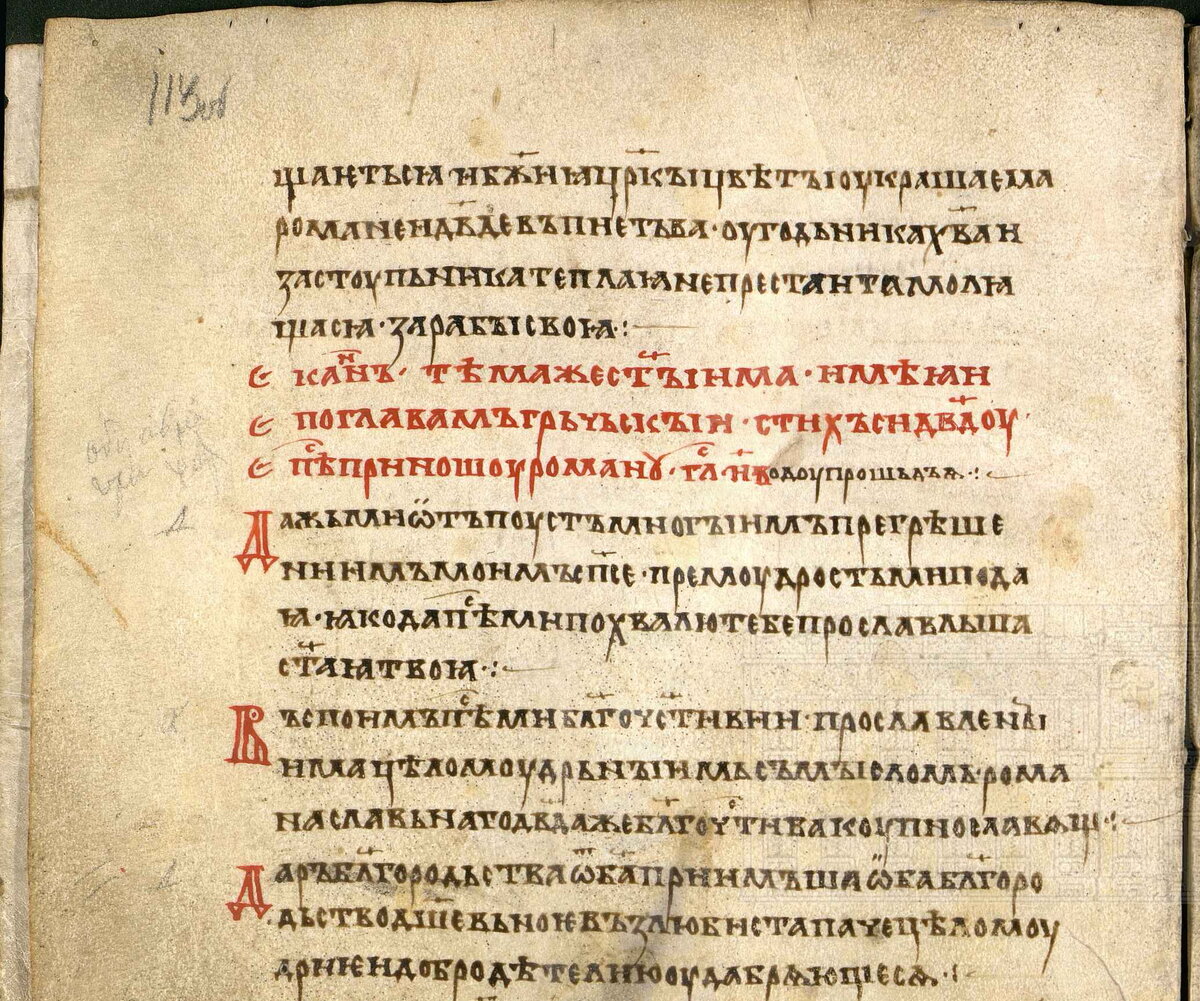 113 об
щаѥтьсѧ · и бж҃иꙗ цр҃кꙑ цвѣтꙑ оукрашаема
романе и дв҃де въпиѥтьва · оугодьника хв҃а и
застоупьника теплаꙗ непрестаита молѧ
щасѧ · за рабꙑ своꙗ ·:
канⷩ҇ъ · тѣмаже ст҃ꙑима · имѣꙗи
по главамъ грьчьскꙑи · стихъ си дв҃доу ·
пⷭ҇ѣ приношоу романꙋ · гла҃ · и҃ водоу прошьдъꙗ ·:
Дажь ми ѿтъпоустъ многꙑимъ прегрѣше
ниимъ моимъ сп҃се · премоудрость ми пода
ꙗ · ꙗко да пⷭ҇ѣми похвалю тебе прославльша
ст҃аꙗ твоꙗ ·:
Въспоимъ пⷭ҇ѣми блг҃очⷭ҇тивии · прославленꙑ
има цѣломоудрьнꙑимь съмꙑсломь · рома
на славьнаго дв҃даже блг҃очⷭ҇тива коупно славѧщ ·:
Даръ блг҃ородьства ѡба приимъша ѡба блг҃оро
дьство дш҃евьноѥ възлюбиста паче цѣломоу
дриѥ и добродѣтелию оудабрѧющесѧ ·: